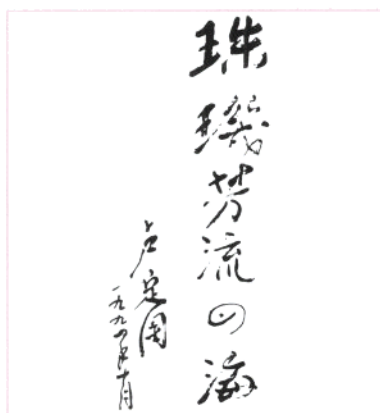 珠璣芳流四海
卢定周
一九九四年十月